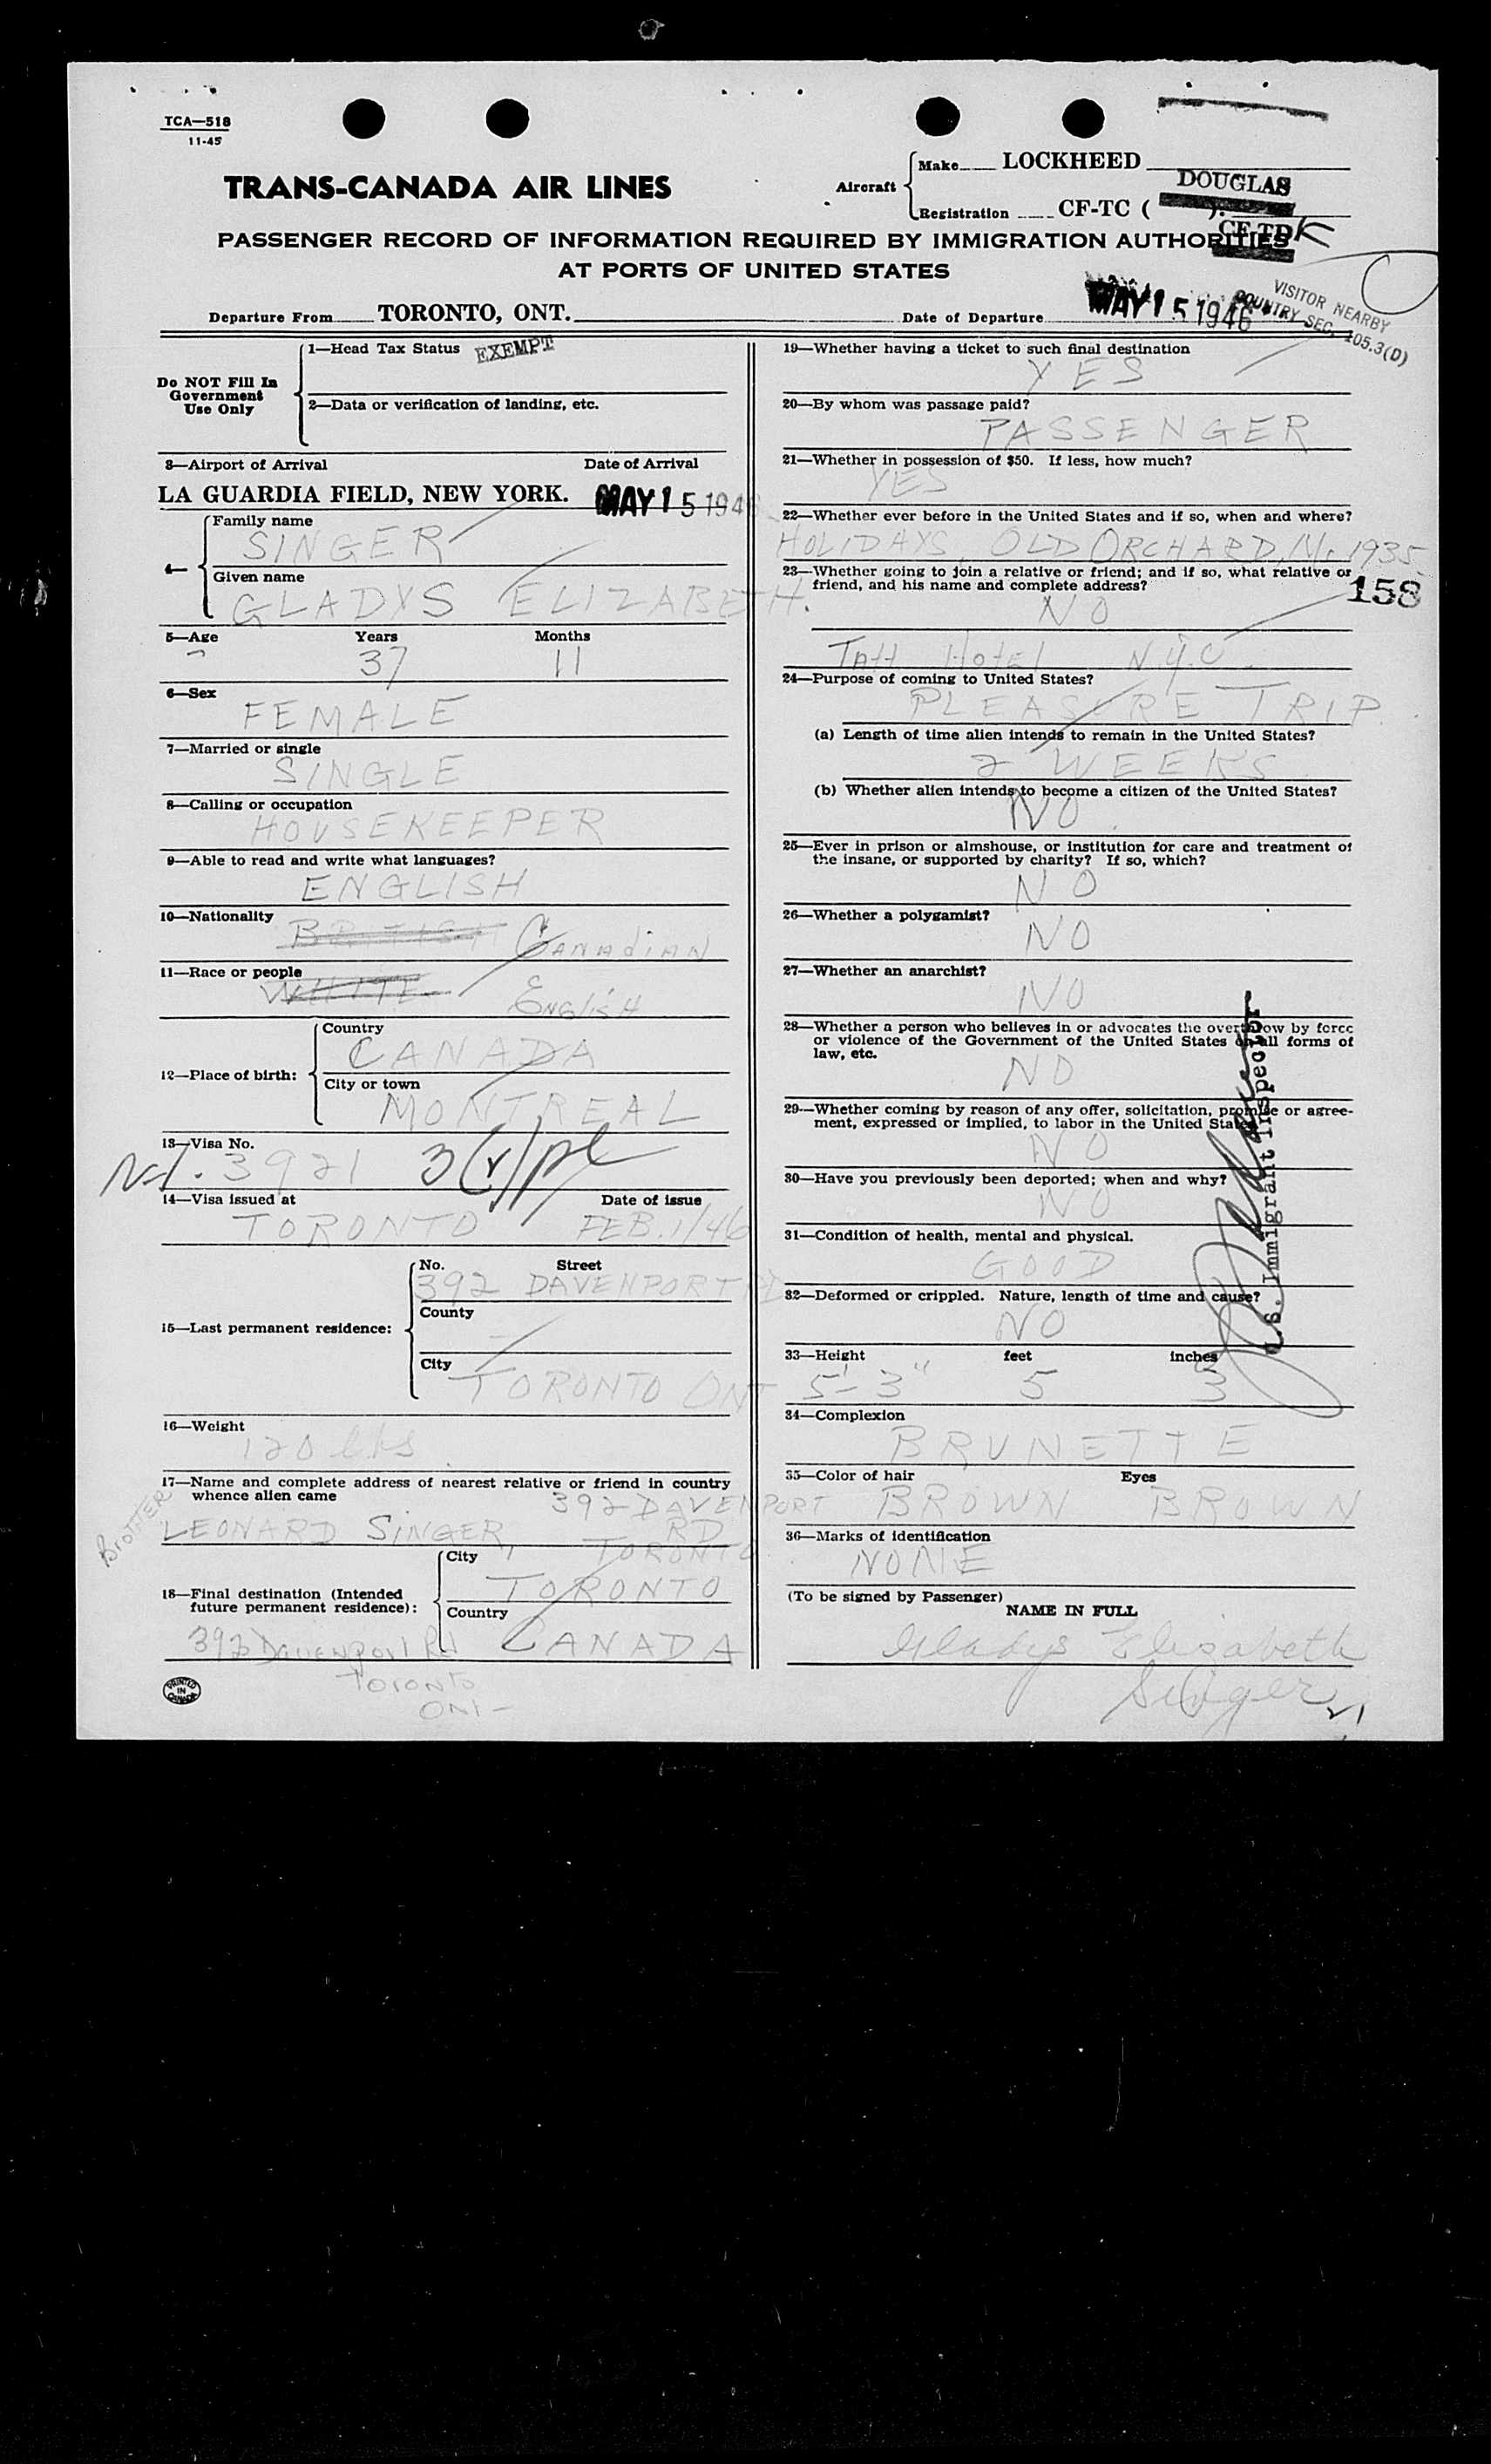 TCA—518
11-45
TRANS-CANADA AIR LINES
Aircraft
Make LOCKHEED
DOUGLAS
Registration CF-TC (
CF-TDK
PASSENGER RECORD OF INFORMATION REQUIRED BY IMMIGRATION AUTHORITIES
AT PORTS OF UNITED STATES
VISITOR NEARBY
COUNTRY SEC. 105.3(D)
Departure From TORONTO, ONT. Date of Departure MAY 15 1946
Do NOT Fill In
Government
Use Only
1—Head Tax Status EXEMPT
2—Data or verification of landing, etc.
3—Airport of Arrival Date of Arrival
LA GUARDIA FIELD, NEW YORK. MAY 15 1946
4—
Family name
SINGER
Given name
GLADYS ELIZABETH.
5—Age Years Months
37 11
6—Sex
FEMALE
7—Married or single
SINGLE
8—Calling or occupation
HOUSEKEEPER
9—Able to read and write what languages?
ENGLISH
10—Nationality
BRITISH Canadian
11—Race or people
WHITE English
12—Place of birth:
Country
CANADA
City or town
MONTREAL
13—Visa No.
3921 3(v)
14—Visa issued at Date of issue
TORONTO FEB. 1/46
15—Last permanent residence:
No. Street
392 DAVENPORT RD
County
—
City
TORONTO ONT
16—Weight
120 lbs
17—Name and complete address of nearest relative or friend in country
whence alien came
392 DAVENPORT
Brother
LEONARD SINGER, RD
TORONTO
18—Final destination (Intended
future permanent residence):
City
TORONTO
Country
CANADA
392 Davenport Rd
Toronto
Ont—
PRINTED
IN
CANADA
19—Whether having a ticket to such final destination
YES
20—By whom was passage paid?
PASSENGER
21—Whether in possession of $50. If less, how much?
YES
22—Whether ever before in the United States and if so, when and where?
HOLIDAYS, OLD ORCHARD, Me 1935.
23—Whether going to join a relative or friend; and if so, what relative or
friend, and his name and complete address?
158
NO
Taft Hotel N.Y.C.
24—Purpose of coming to United States?
PLEASURE TRIP.
(a) Length of time alien intends to remain in the United States?
2 WEEKS
(b) Whether alien intends to become a citizen of the United States?
NO.
25—Ever in prison or almshouse, or institution for care and treatment of
the insane, or supported by charity? If so, which?
NO
26—Whether a polygamist?
NO
27—Whether an anarchist?
NO
28—Whether a person who believes in or advocates the overthrow by force
or violence of the Government of the United States or all forms of
law, etc.
NO
29—Whether coming by reason of any offer, solicitation, promise or agree-
ment, expressed or implied, to labor in the United States
NO
30—Have you previously been deported; when and why?
NO
31—Condition of health, mental and physical.
GOOD
32—Deformed or crippled. Nature, length of time and cause?
NO
33—Height feet inches
5'-3" 5 3
34—Complexion
BRUNETTE
35—Color of hair Eyes
BROWN BROWN
36—Marks of identification
NONE
(To be signed by Passenger)
NAME IN FULL
Gladys Elizabeth
Singer
U.S. Immigrant Inspector